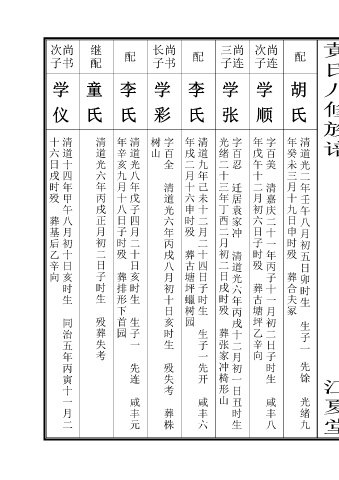 黄氏八修族谱
江夏堂
配
胡氏
清道光二年壬午八月初五日卯时生 生子一 先馀 光绪九
年癸未三月十九日申时殁 葬合夫冢
尚连次子
学顺
字百美 清嘉庆二十一年丙子十一月初二日子时生 咸丰八
年戊午十二月初六日子时殁 葬古塘坪乙辛向
尚连三子
学张
字百忍 迁居袁家冲 清道光六年丙戌十二月初一日丑时生
光绪二十三年丁酉二月初二日戌时殁 葬张家冲椅形山
配
李氏
清道光九年己未十二月二十四日子时生 生子一先开 咸丰六
年戌二月十六申时殁 葬古塘坪蜡树园
尚书长子
学彩
字百全 清道光六年丙戌八月初十日亥时生 殁失考 葬株
树山
配
李氏
清道光八年戊子四月二十日亥时生 生子一 先连 咸丰元
年辛亥九月十八日子时殁 葬排形下首园
继配
童氏
清道光六年丙戌正月初二日子时生 殁葬失考
尚书次子
学仪
清道光十四年甲午八月初十日亥时生 同治五年丙寅十一月二
十六日戌时殁 葬基后乙辛向